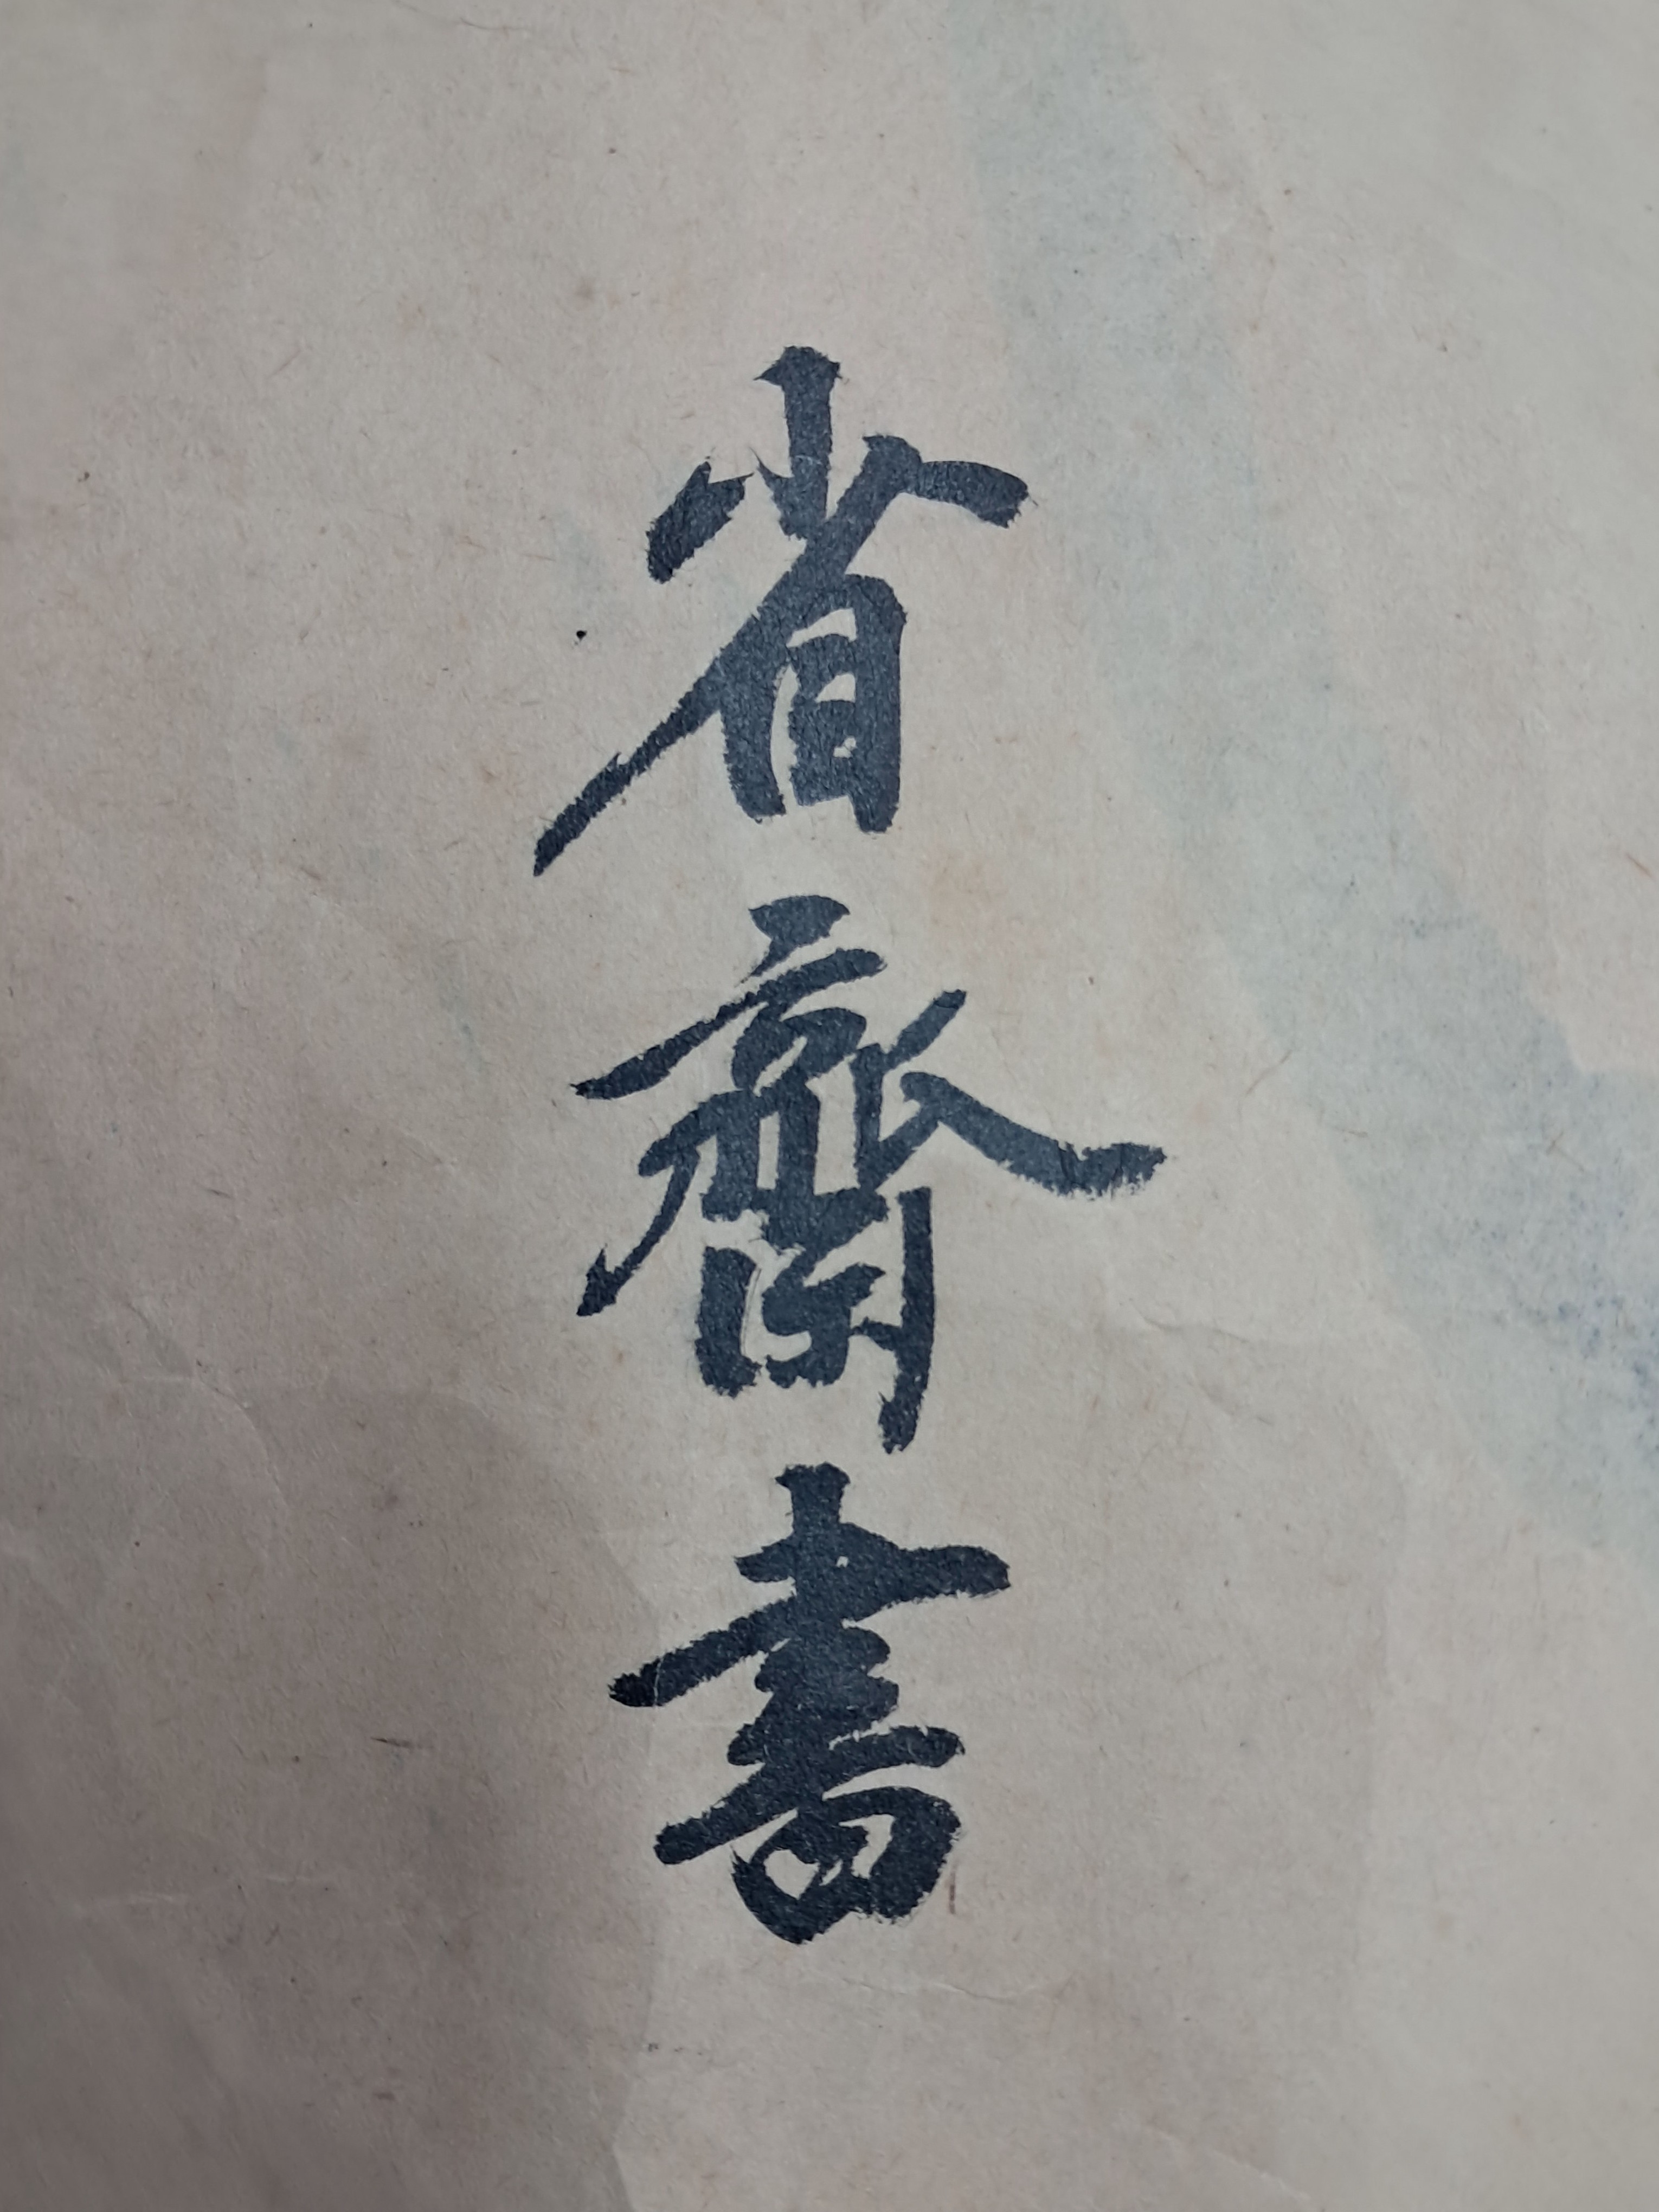 省齋書